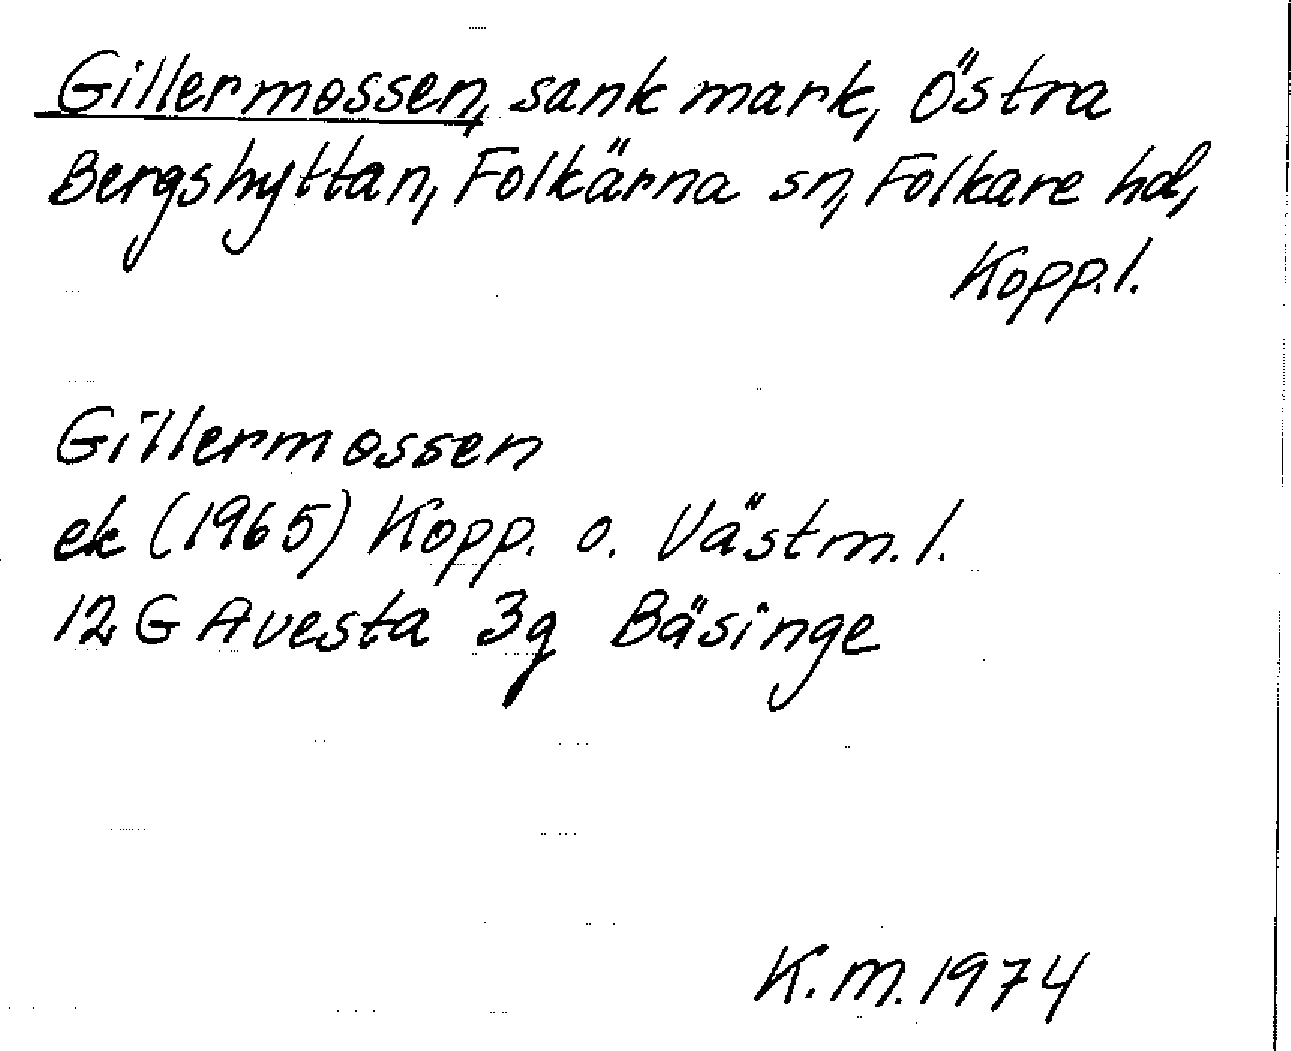 Gillermossen, sank mark, Östra
Bergshyttan, Folkärna sn, Folkare hd,
Kopp.l.
Gillermossen
ek (1965) Kopp. o. Västm.l.
12 G Avesta 3g Bäsinge
K.M. 1974